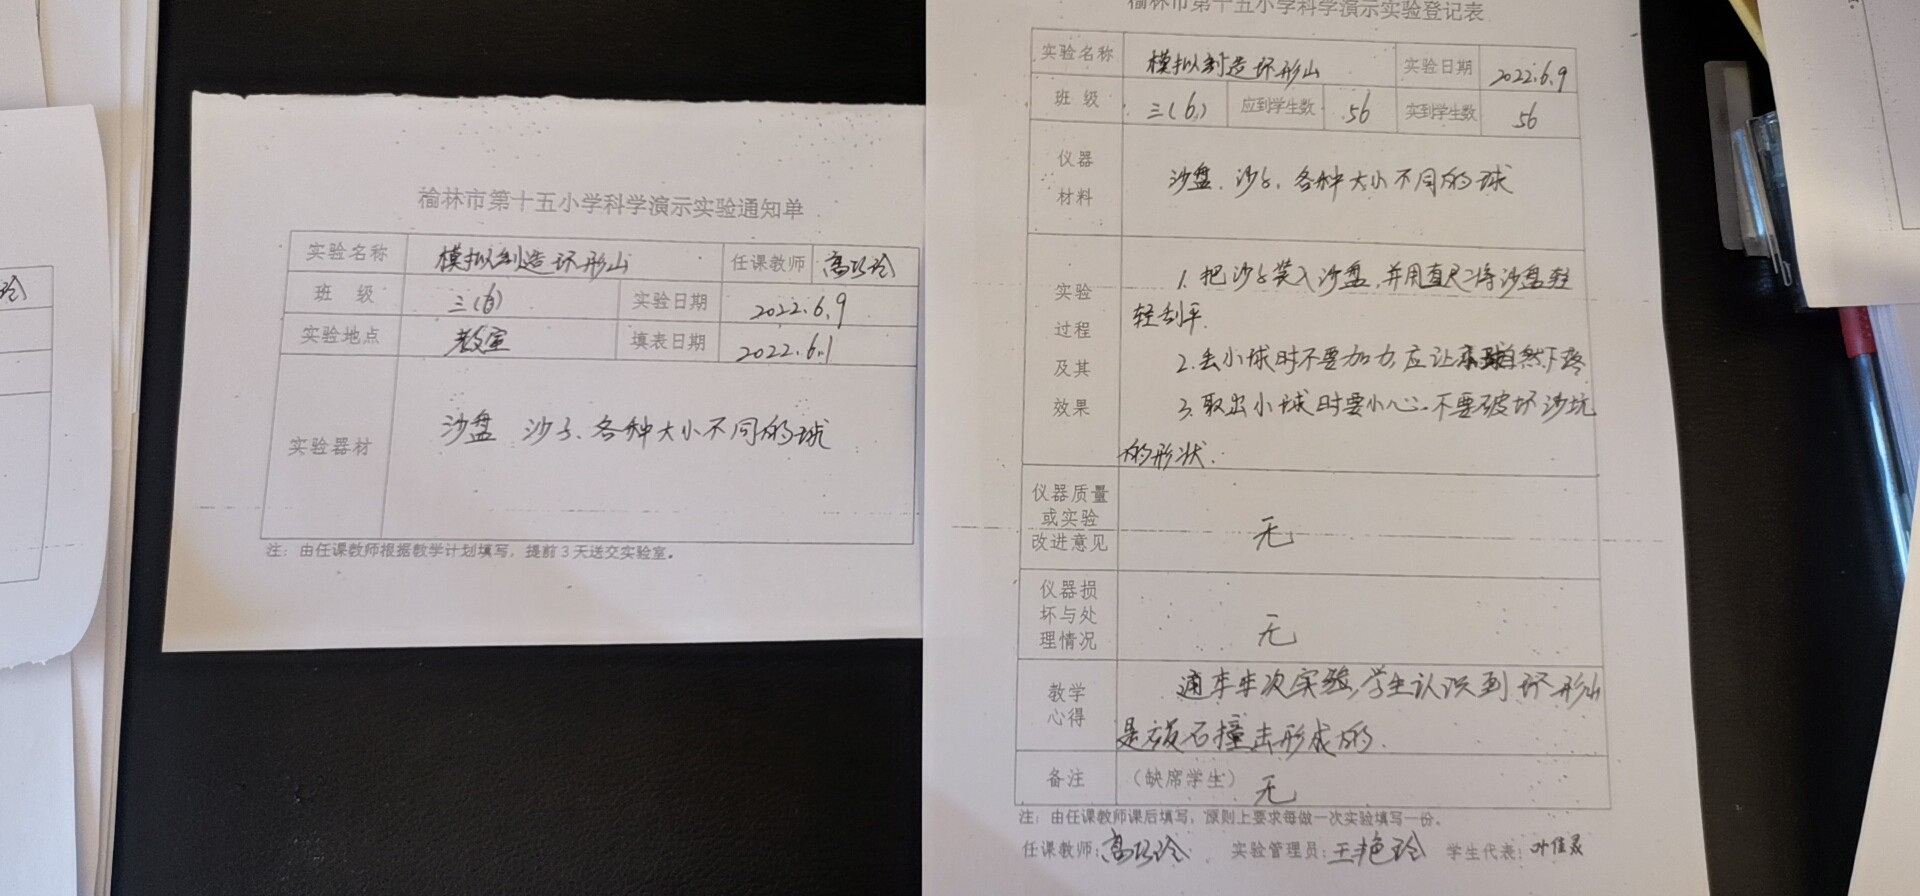 榆林市第十五小学科学演示实验通知单
实验名称 模拟制造环形山 任课教师 高巧玲
班 级 三(6) 实验日期 2022.6.9
实验地点 教室 填表日期 2022.6.1
实验器材 沙盘 沙子、各种大小不同的球
注：由任课教师根据教学计划填写，提前3天送交实验室。
榆林市第十五小学科学演示实验登记表
实验名称 模拟制造环形山 实验日期 2022.6.9
班 级 三(6) 应到学生数 56 实到学生数 56
仪器
材料
沙盘、沙子、各种大小不同的球
实验
过程
及其
效果
1. 把沙子装入沙盘,并用直尺将沙盘轻
轻刮平.
2. 丢小球时不要加力,应让小球自然下落
3. 取出小球时要小心.不要破坏沙坑
的形状.
仪器质量
或实验
改进意见
无
仪器损
坏与处
理情况
无
教学
心得
通本次实验,学生认识到环形山
是陨石撞击形成的.
备注 （缺席学生） 无
注：由任课教师课后填写，原则上要求每做一次实验填写一份。
任课教师：高巧玲 实验管理员：王艳玲 学生代表：叶佳
玲